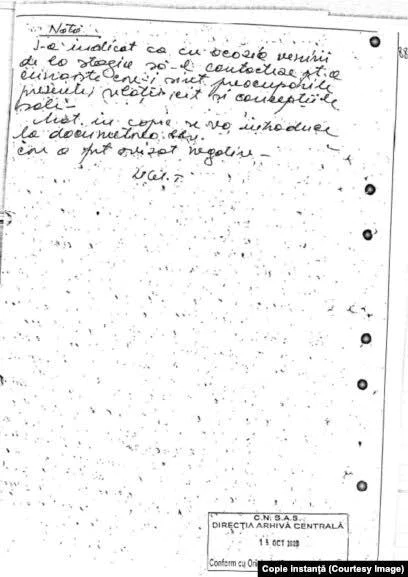 Notă
I-a indicat ca cu ocazia venirii
de la stagiu să-l contacteze pt. a
cunoaște care-i sînt preocupările
prezente, relații, cît și concepțiile
sale.
Mat. în copie se va introduce
la documentele
care a fost avizat negativ.
88
C.N.S.A.S.
DIRECȚIA ARHIVĂ CENTRALĂ
15 OCT 2020
Conform cu Ori
Copie instanță (Courtesy Image)